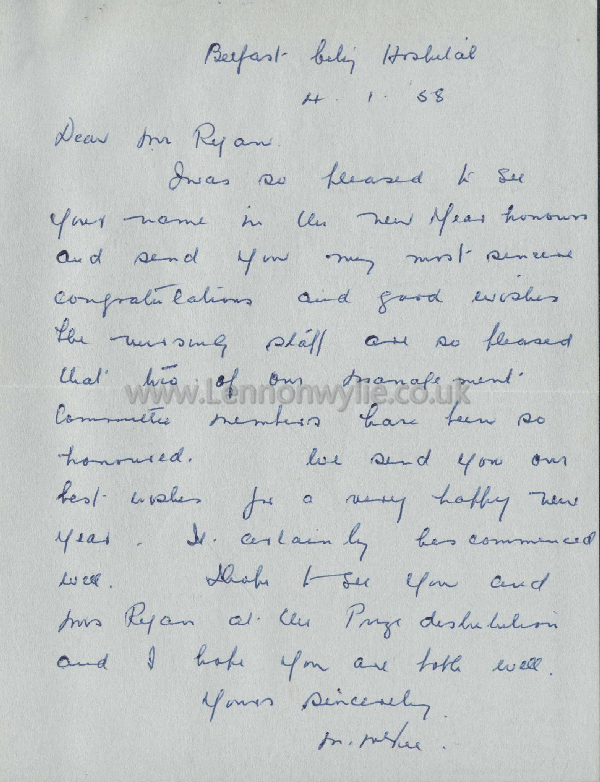 Belfast City Hospital
4. 1. 58
Dear Mr Ryan.
I was so pleased to see
your name in the new Year honours
and send you my most sincere
congratulations and good wishes
The nursing staff are so pleased
that two of our management
www.Lennonwylie.co.uk
Committee members have been so
honoured. We send you our
best wishes for a very happy new
year. It certainly has commenced
well. I hope to see you and
Mrs Ryan at the Prize distribution
and I hope you are both well.
Yours sincerely
M.